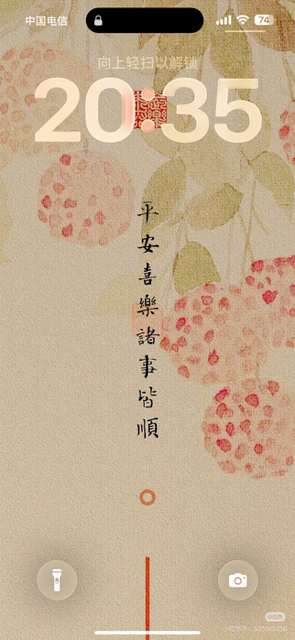 中国电信
74
向上轻扫以解锁
20:35
平安喜樂諸事皆順
小红书